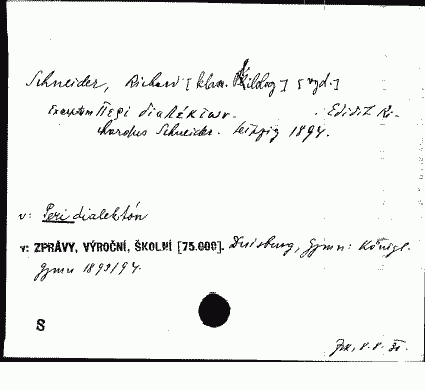 Schneider, Richard [klass. Filolog] [vyd.]
Excerptum Περὶ διαλέκτων. Edidit Ri-
chardus Schneider. Leipzig 1894.
v: Peri dialektón
v: ZPRÁVY, VÝROČNÍ, ŠKOLNÍ [75.000]. Duisburg, Gymn: Königl.
Gymn 1893/94.
S